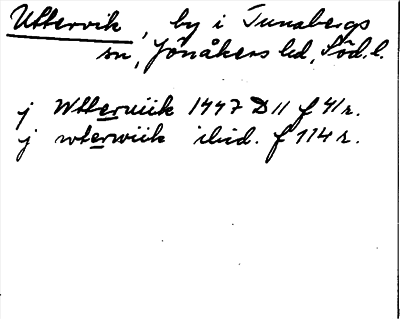 Uttervik, by i Tunabergs
sn, Jönåkers hd, Söd. l.
j Wtterviik 1447 D 11 f 41 r.
j wterwiik ibid. f 114 r.